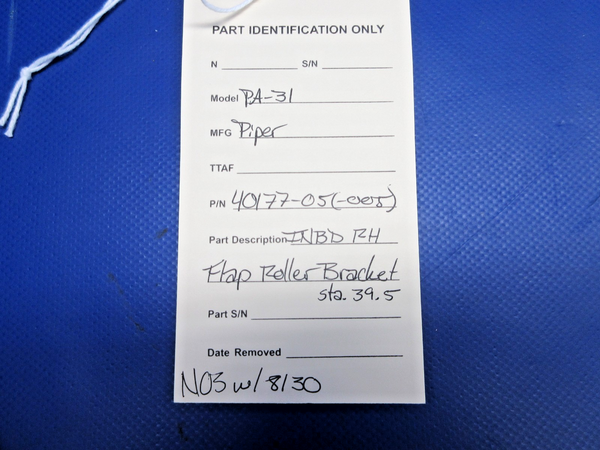 PART IDENTIFICATION ONLY
N S/N
Model PA-31
MFG Piper
TTAF
P/N 40177-05(-005)
Part Description INBD RH
Flap Roller Bracket
sta. 39.5
Part S/N
Date Removed
NOS w/ 8130